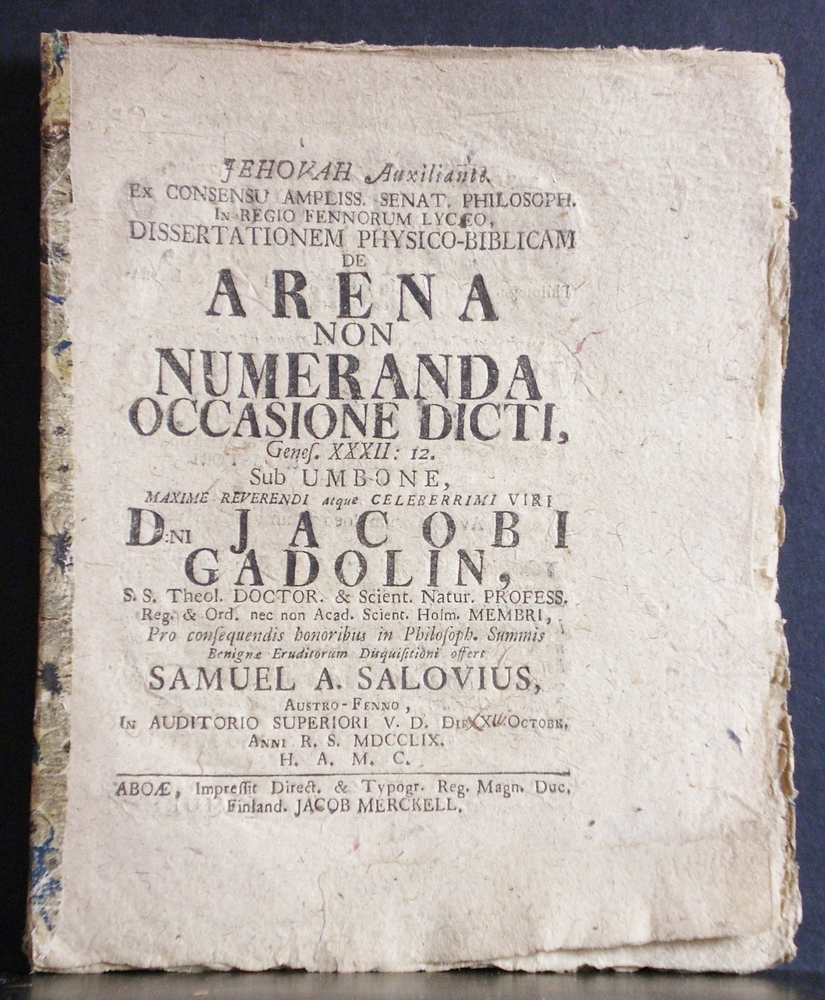 JEHOVAH Auxiliante
Ex CONSENSU AMPLISS. SENAT. PHILOSOPH.
In REGIO FENNORUM LYCÆO,
DISSERTATIONEM PHYSICO-BIBLICAM
DE
ARENA
NON
NUMERANDA
OCCASIONE DICTI,
Geneſ. XXXII: 12.
Sub UMBONE,
MAXIME REVERENDI atque CELEBERRIMI VIRI
D:NI JACOBI
GADOLIN,
S. S. Theol. DOCTOR. & Scient. Natur. PROFESS.
Reg. & Ord. nec non Acad. Scient. Holm. MEMBRI,
Pro conſequendis honoribus in Philoſoph. Summis
Benignæ Eruditorum Diſquiſitioni offert
SAMUEL A. SALOVIUS,
Austro-Fenno,
In AUDITORIO SUPERIORI V. D. Die Octobr.
Anni R. S. MDCCLIX.
H. A. M. C.
ABOÆ, Impreſſit Direct. & Typogr. Reg. Magn. Duc.
Finland. JACOB MERCKELL.